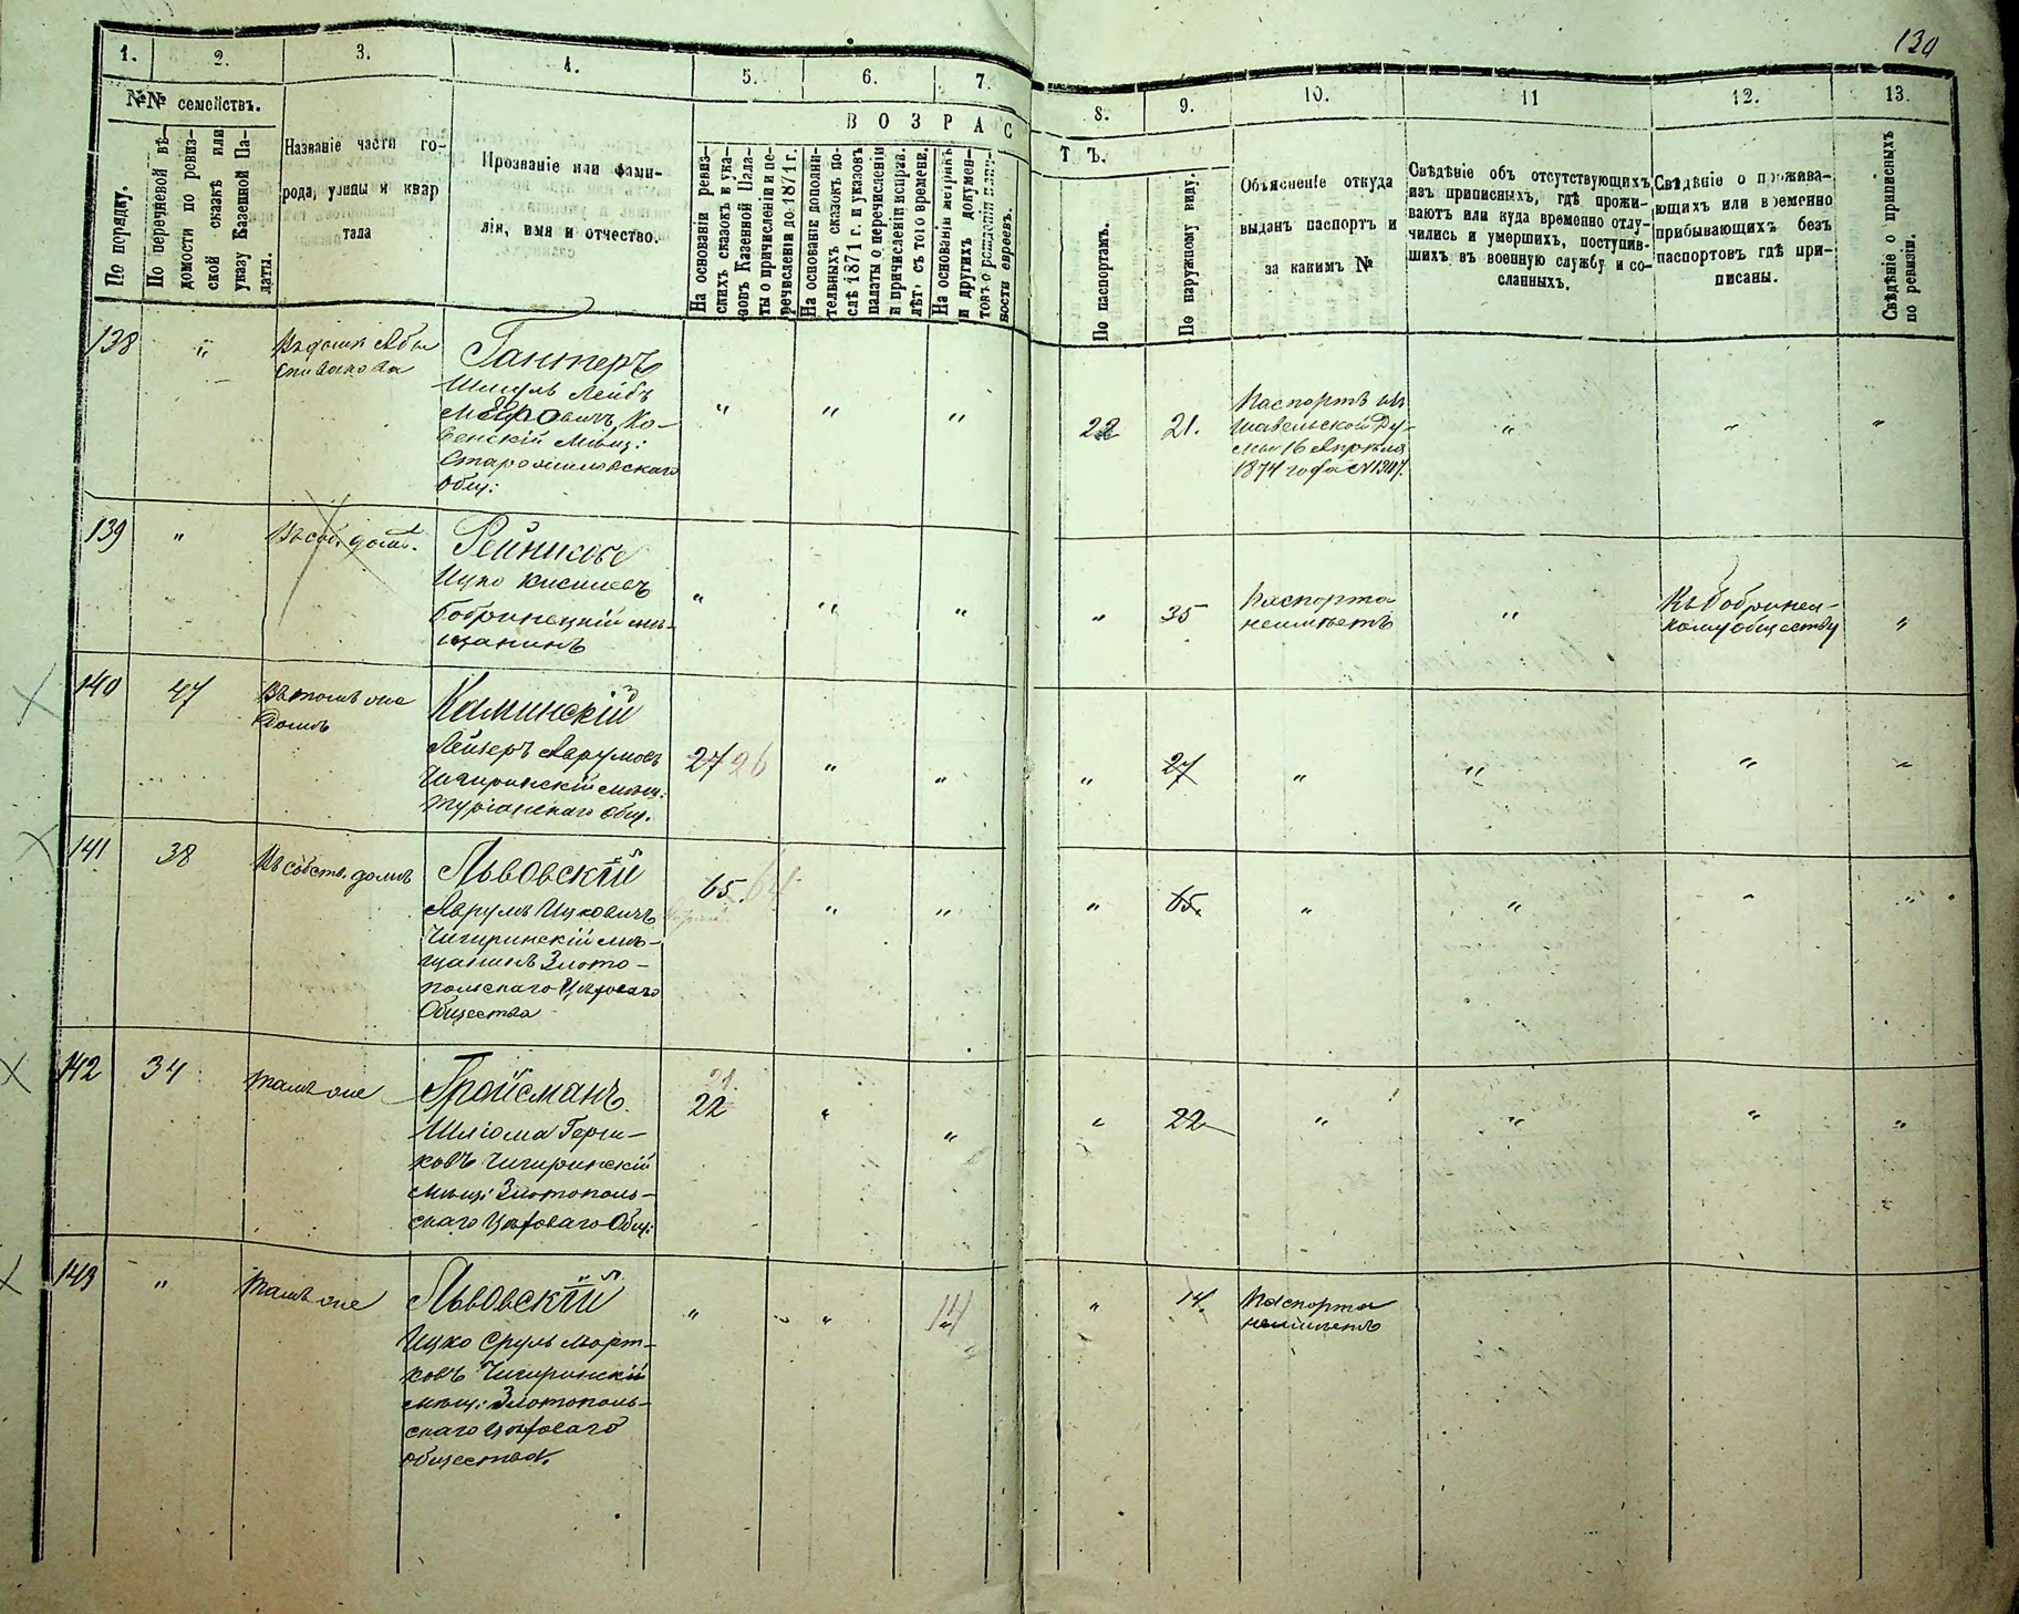 130
1. 2. 3. 4. 5. 6. 7. 8. 9. 10. 11 12. 13.
№№ семействъ.
По порядку.
По перечневой вѣ-
домости по ревиз-
ской сказкѣ или
указу Казенной Па-
латы.
Названіе части го-
рода, улицы и квар
тала
Прозваніе или фами-
лія, имя и отчество.
ВОЗРАС
ТЪ.
На основаніи ревиз-
скихъ сказокъ и ука-
зовъ Казенной Пала-
ты о причисленіи и пе-
речисленіи до 1871 г.
На основаніе дополни-
тельныхъ сказокъ по-
слѣ 1871 г. и указовъ
палаты о перечисленіи
и причисленіи исправ.
лѣт. съ того времени.
На основаніи метрикъ
и другихъ докумен-
товъ о рожденіи
ности евреевъ.
По паспортамъ.
По наружному виду.
Объясненіе откуда
выданъ паспортъ и
за какимъ №
Свѣдѣніе объ отсутствующихъ
изъ приписныхъ, гдѣ прожи-
ваютъ или куда временно отлу-
чились и умершихъ, поступив-
шихъ въ военную службу и со-
сланныхъ.
Свѣдѣніе о прожива-
ющихъ или временно
прибывающихъ безъ
паспортовъ гдѣ при-
писаны.
Свѣдѣніе о приписныхъ
по ревизіи.
138 " Въ домѣ Абы
Спивакова
Гантеръ
Шмуль Лейбъ
Мееровичъ, Ко-
венскій мѣщ:
общ:
" " " 22 21. " " "
Паспортъ изъ
Шавельской Ду-
мы 16 Апрѣля
1874 года №
139 " Въ соб. домѣ.
Рейниковъ
Ицко Кисилевъ
Бобринецкій мѣ-
щанинъ
" " " " 35 " "
Паспорта
неимѣетъ
Къ Бобринец-
кому обществу
140 47 Въ томъ же
домѣ
Каминскій
Лейзеръ Аврумовъ
Чигиринскій мѣщ.
Туріанскаго общ.
27 26 " " " 27 " " " "
141 38 Въ собств. домѣ
Львовскій
Аврумъ Ицковичъ
Чигиринскій мѣ-
щанинъ Злото-
польскаго Цехового
Общества
65. 64 " " " 65. " " " "
142 34 Тамъ же
Гройсманъ
Шліома Герш-
ковъ Чигиринскій
мѣщ: Злотополь-
скаго Цеховаго Общ:
21.
22 " " " 22 " " " "
143 " Тамъ же
Львовскій
Ицко Сруль Морт-
ковъ Чигиринскій
мѣщ: Злотополь-
скаго Цеховаго
Общества.
" " 14 " 14.
Паспорта
неимѣетъ